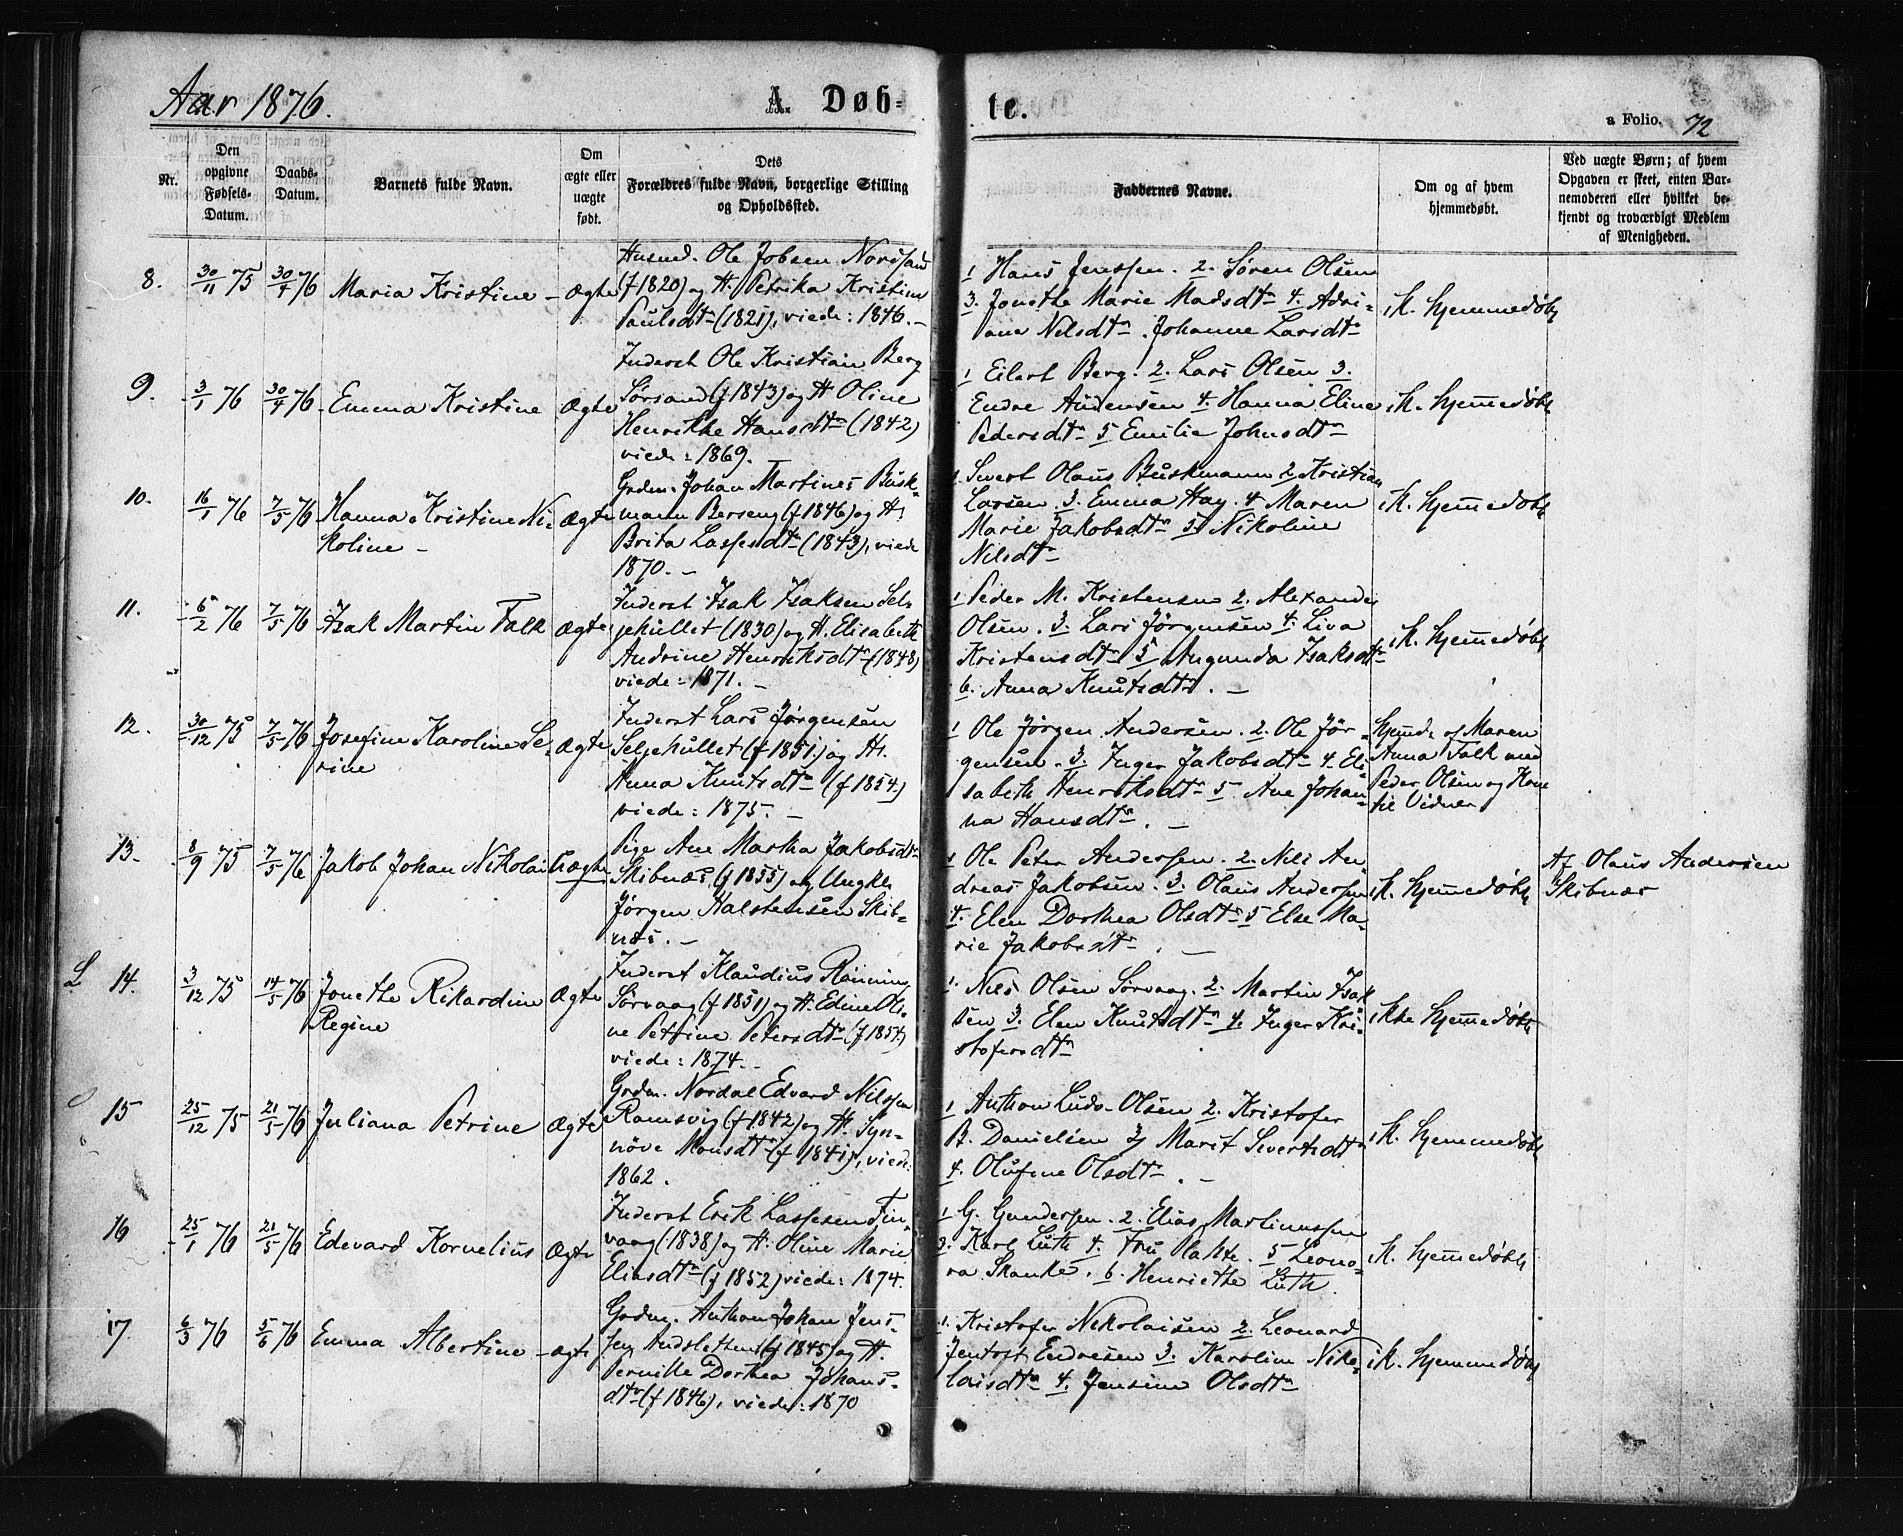 Aar 1876.
A. Døb-
te.
a Folio. 72
Nr.
Den opgivne Fødsels-Datum.
Daabs-Datum.
Barnets fulde Navn.
Om ægte eller uægte født.
Dets Forældres fulde Navn, borgerlige Stilling og Opholdssted.
Faddernes Navne.
Om og af hvem hjemmedøbt.
Ved uægte Børn; af hvem
Opgaven er skeet, enten Bar-
nemoderen eller hvilket be-
kjendt og troværdigt Medlem
af Menigheden.
8. 30/11 75 30/4 76 Maria Kristine - Ægte
Husmd. Ole Jobsen Norsand
(f 1820) og H. Petrika Kristine
Paulsdtr (1821), viede: 1846. -
1 Hans Jenssen. 2. Søren Olsen
3. Jonethe Marie Madsdtr 4. Adri-
ane Nilsdtr. Johanne Larsdtr
ik. hjemmedøbt
9. 3/1 76 30/4 76 Emma Kristine Ægte
Inderst Ole Kristian Berg
Sørsand (f 1843) og H Oline
Henrikke Hansdtr (1842)
viede: 1869.
1 Eilert Berg. 2. Lars Olsen 3.
Endre Andersen 4. Hanna Eline
Pedersdtr 5 Emilie Johnsdtr
ik. hjemmedøbt
10. 16/1 76 7/5 76 Hanna Kristine Ni-
koline - Ægte
Grdm. Johan Martines Busk-
mann Berseng (f 1846) og H.
Brita Lassesdtr (1843), viede
1870. -
1 Sivert Olaus Buskmann 2 Kristian
Larsen. 3. Emma Hay. 4 Maren
Marie Jakobsdtr 5. Nikoline
Nilsdtr
ik. hjemmedøbt
11. 6/2 76 7/5 76 Isak Martin Falk Ægte
Inderst Isak Isaksen Sel-
jehullet (1830) og H. Elisabeth
Andrine Henriksdtr (f 1848)
viede: 1871. -
1 Peder M. Kristensen 2. Alexander
Olsen. 3. Lars Jørgensen 4. Liva
Kristensdtr 5 Augunda Isaksdtr
6. Anna Knutsdtr. -
ik. hjemmedøbt
12. 30/12 75 7/5 76 Josefine Karoline Se-
rine Ægte
Inderst Lars Jørgensen
Seljehullet (f 1851.) og H.
Anna Knutsdtr (f 1854.)
viede: 1875. -
1 Ole Jørgen Andersen. 2. Ole Jør-
gensen. 3. Inger Jakobsdtr 4. Eli-
sabeth Henriksdtr 5. Ane Johan-
na Hansdtr. -
hjemd. af Maren
Anna Falk med
Peder Olsen og Kone
til Vidner
13. 8/9 75 7/5 76 Jakob Johan Nikolai Uægte
Pige Ane Martha Jakobsdtr
Skibnæs, (f 1855) og Ungkl.
Jørgen Halstensen Skib-
næs. -
1 Ole Peter Andersen. 2. Nils An-
dreas Jakobsen. 3. Olaus Andersen
4. Elen Dorthea Olsdtr 5 Else Ma-
rie Jakobsdtr. -
ik. hjemmedøbt
Af Olaus Andersen
Skibnæs
L 14. 3/12 75 14/5 76 Jonethe Rikardine
Regine Ægte
Inderst Klaudius Rønning
Sørvaag (f 1851) og H. Edine Oli-
ne Petrine Petersdtr (f 1854.)
viede: 1874. -
1. Nils Olsen Sørvaag. 2. Martin Isak-
sen 3. Elen Knutsdtr 4. Inger Kri-
stofersdtr
ikke hjemmedøbt
15 25/12 75 21/5 76 Juliana Petrine Ægte
Grdm. Nordal Edvard Nilssen
Ramsvig (f 1842) og H. Syn-
növe Monsdtr (f 1841), viede:
1862.
1 Anthon Ludv. Olsen 2. Kristofer
B. Danielsen 3 Marit Sivertsdtr
4. Olufine Olsdtr. -
ik. hjemmedøbt
16 25/1 76 21/5 76 Edevard Kornelius Ægte
Inderst Erik Lassesen Fin-
vaag (1838) og H. Oline Marie
Eliasdtr (f 1852) viede: 1874.
1 G. Gundersen. 2. Elias Martinussen
3. Karl Luth 4. Fru Platte. 5 Leono-
ra Skanke. 6. Henriethe Luth.
ik. hjemmedøbt
17. 6/3 76 5/6 76 Emma Albertine - ægte
Grdm. Anthon Johan Jens-
sen Andsletten (f 1845) og H.
Pernille Dorthea Johans-
dtr (f 1846), viede: 1870
1. Kristofer Nikolaisen 2. Leonard
Jentoft Endresen 3. Karoline Niko-
laisdtr 4. Jensine Olsdtr
ik. hjemmedøbt